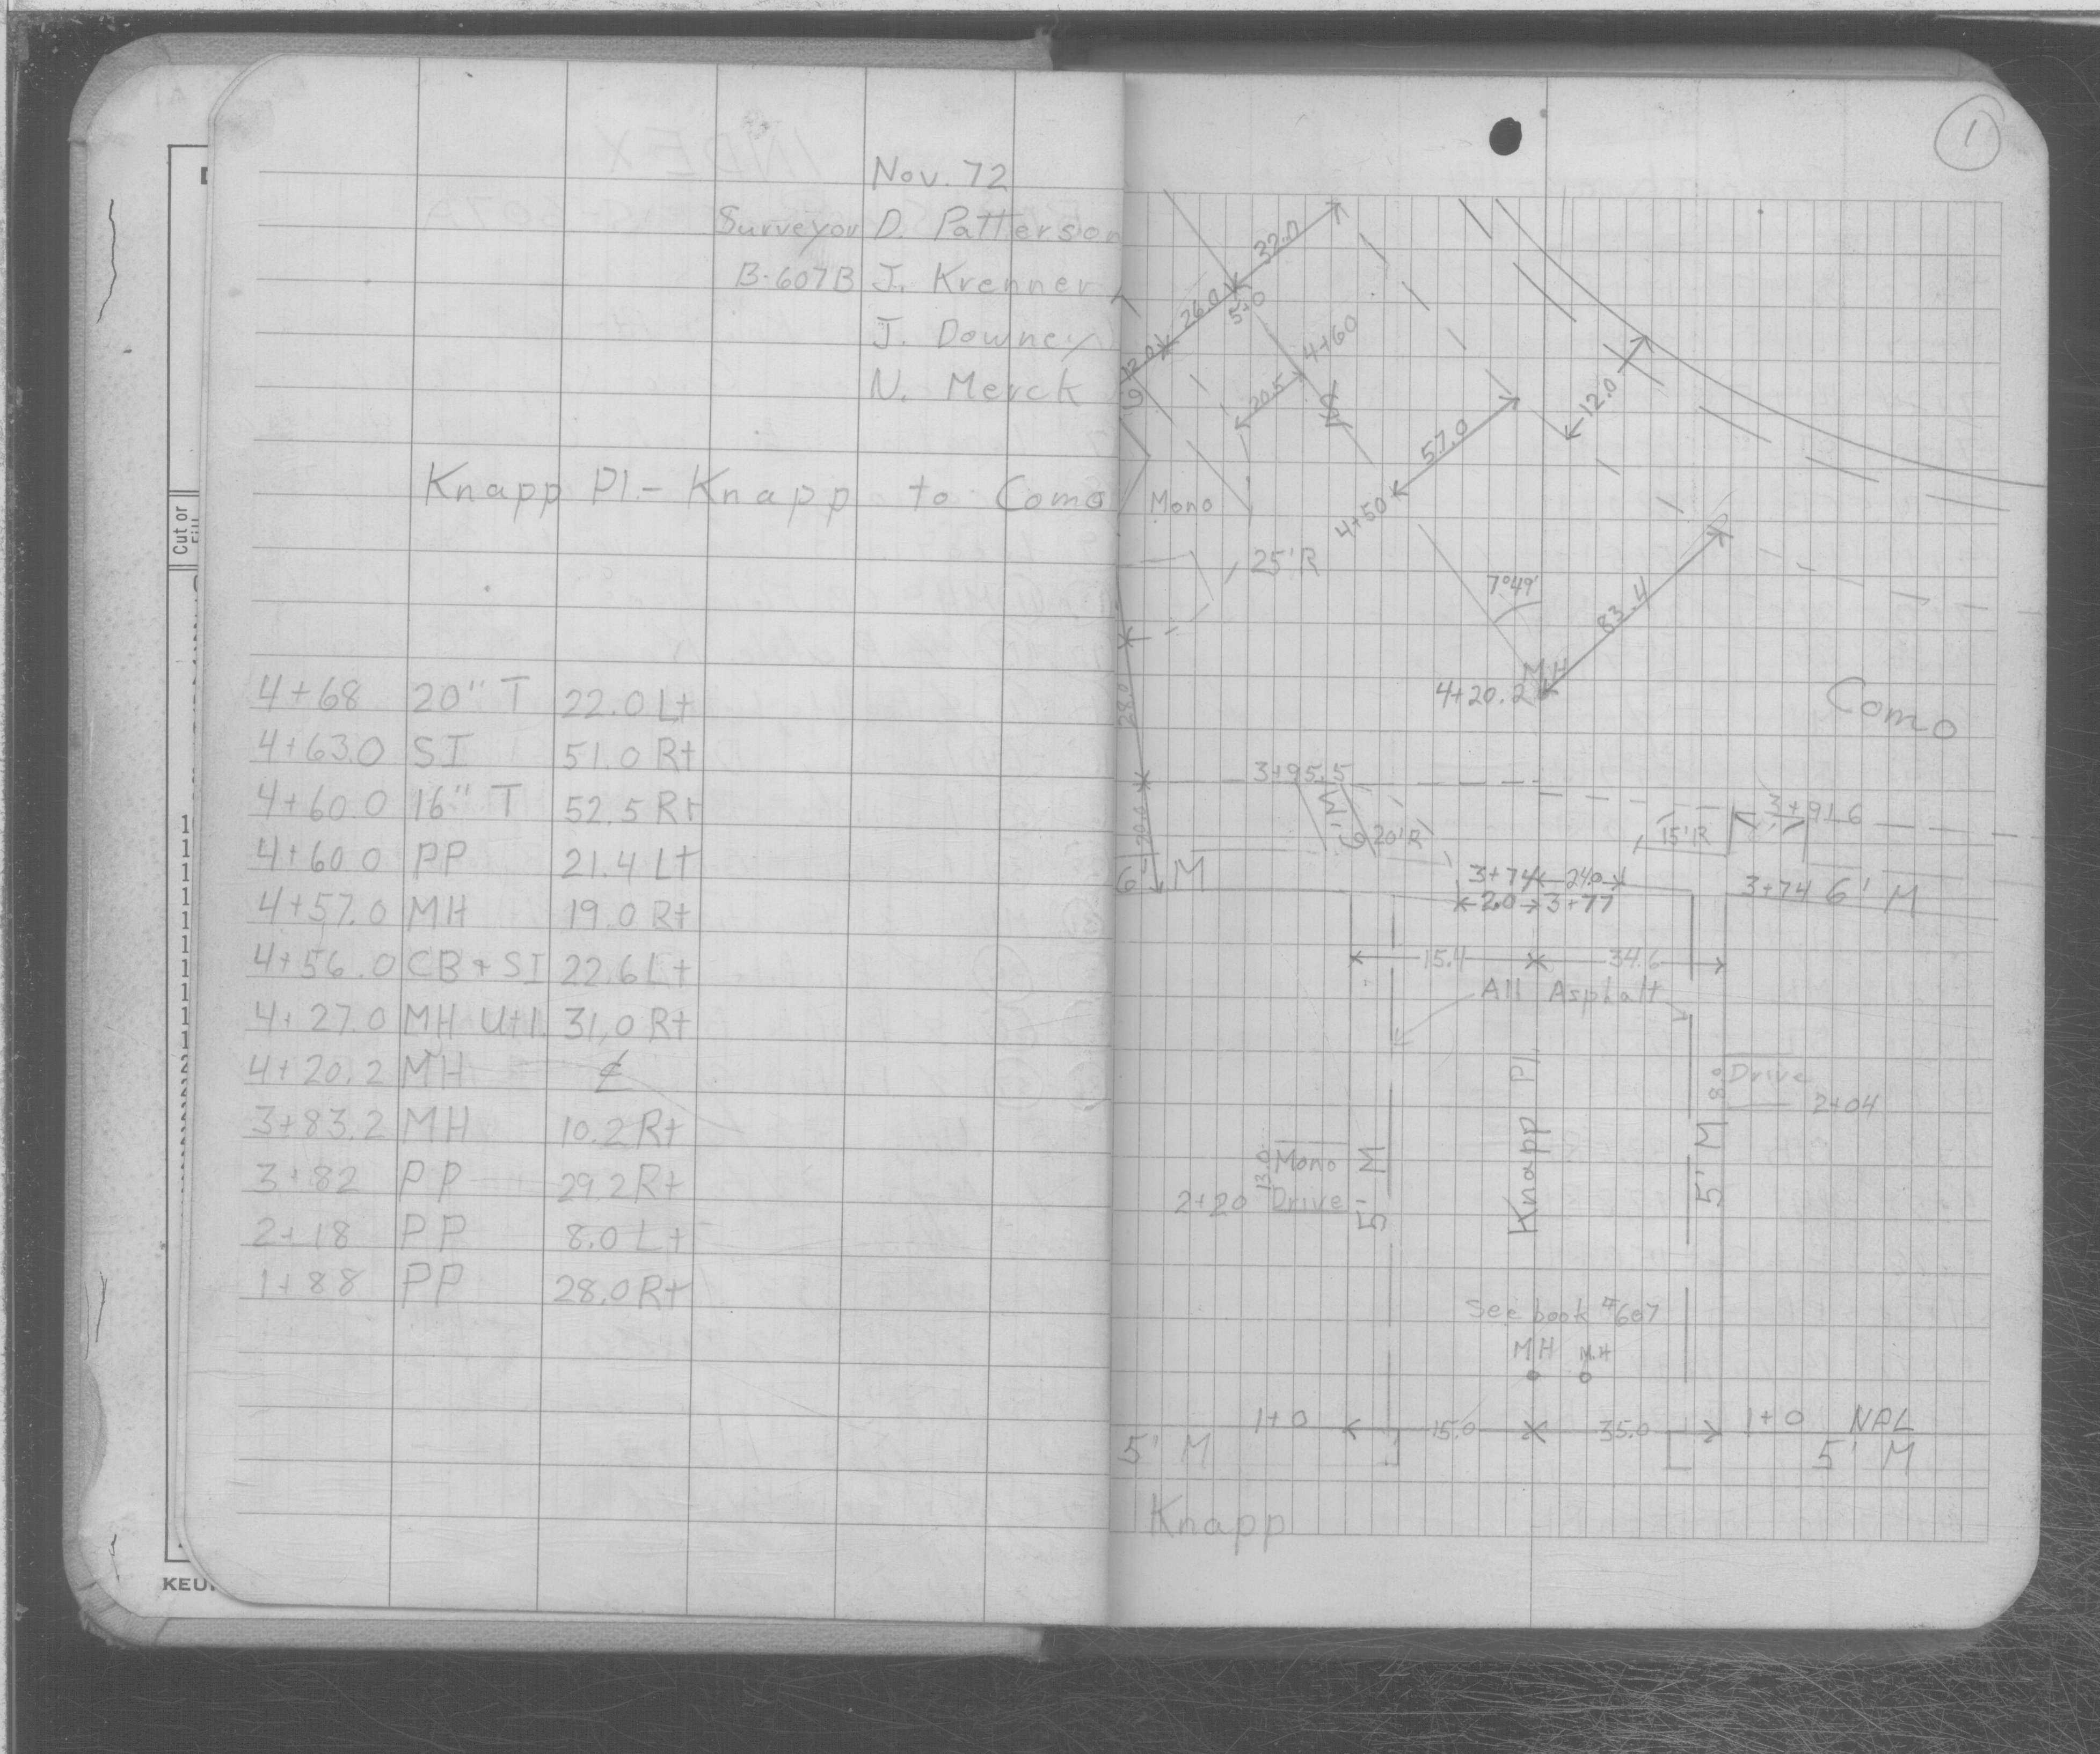 Nov. 72
Surveyor D. Patterson
B-607B J. Krenner
J. Downey
N. Merck
Knapp Pl. - Knapp to Como
4+68 20" T 22.0 Lt
4+63.0 SI 51.0 Rt
4+60.0 16" T 52.5 Rt
4+60.0 PP 21.4 Lt
4+57.0 MH 19.0 Rt
4+56.0 CB + SI 22.6 Lt
4+27.0 MH Util. 31.0 Rt
4+20.2 MH ₵
3+83.2 MH 10.2 Rt
3+82 PP 29.2 Rt
2+18 PP 8.0 Lt
1+88 PP 28.0 Rt
Cut or
KEU
1
32.0
26.0
5+0
4+60
20.5
12.0
57.0
4+50
Mono
25' R
7°49'
83.4
MH
4+20.2
Como
28.0
3+95.5
20' R
15' R
3+91.6
20.0
6' M
3+74 24.0
20 3+77
3+74 6' M
15.4 34.6
All Asphalt
Knapp Pl.
8.0 Drive
2+04
5' M
13.0 Mono
2+20 Drive
5' M
See book #607
MH MH
1+0 15.0 35.0 1+0 NPL
5' M 5' M
Knapp